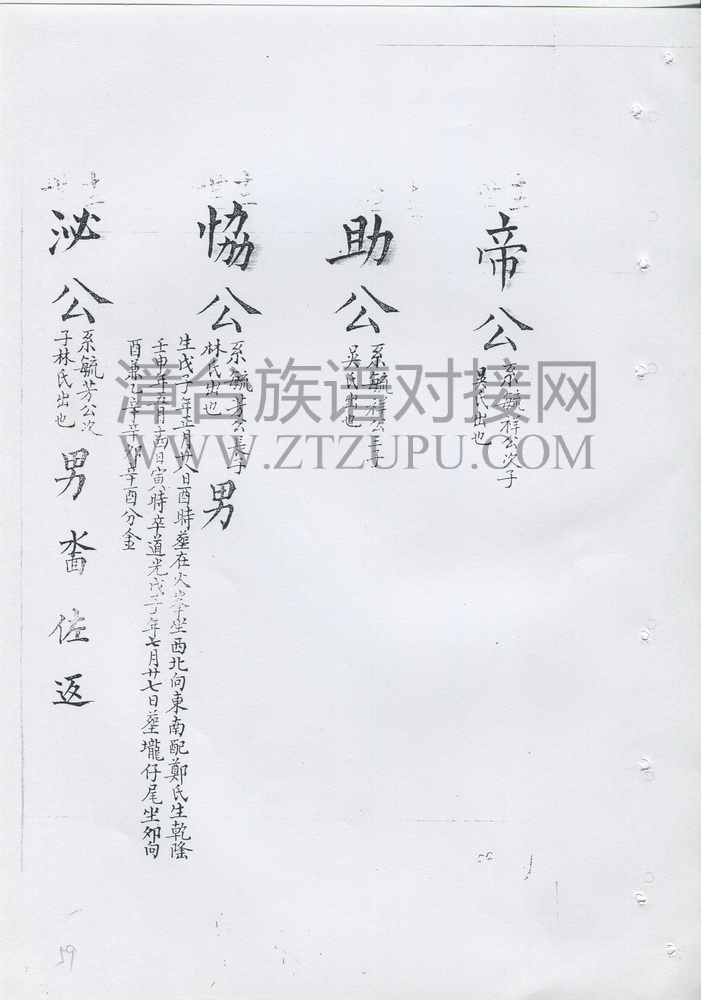 帝公
系毓祥公次子
吳氏出也
助公
系毓祥公三子
吳氏出也
協公
系毓芳公長子
林氏出也
男
生戊子年正月廿八日酉時塟在火峯坐西北向東南配鄭氏生乾隆
壬申年五月日寅時卒道光戊子年七月廿七日塟壠仔尾坐卯向
酉兼乙辛辛卯辛酉分金
泌公
系毓芳公次
子林氏出也
男
畓
佐
返
漳台族谱对接网
WWW.ZTZUPU.COM
59